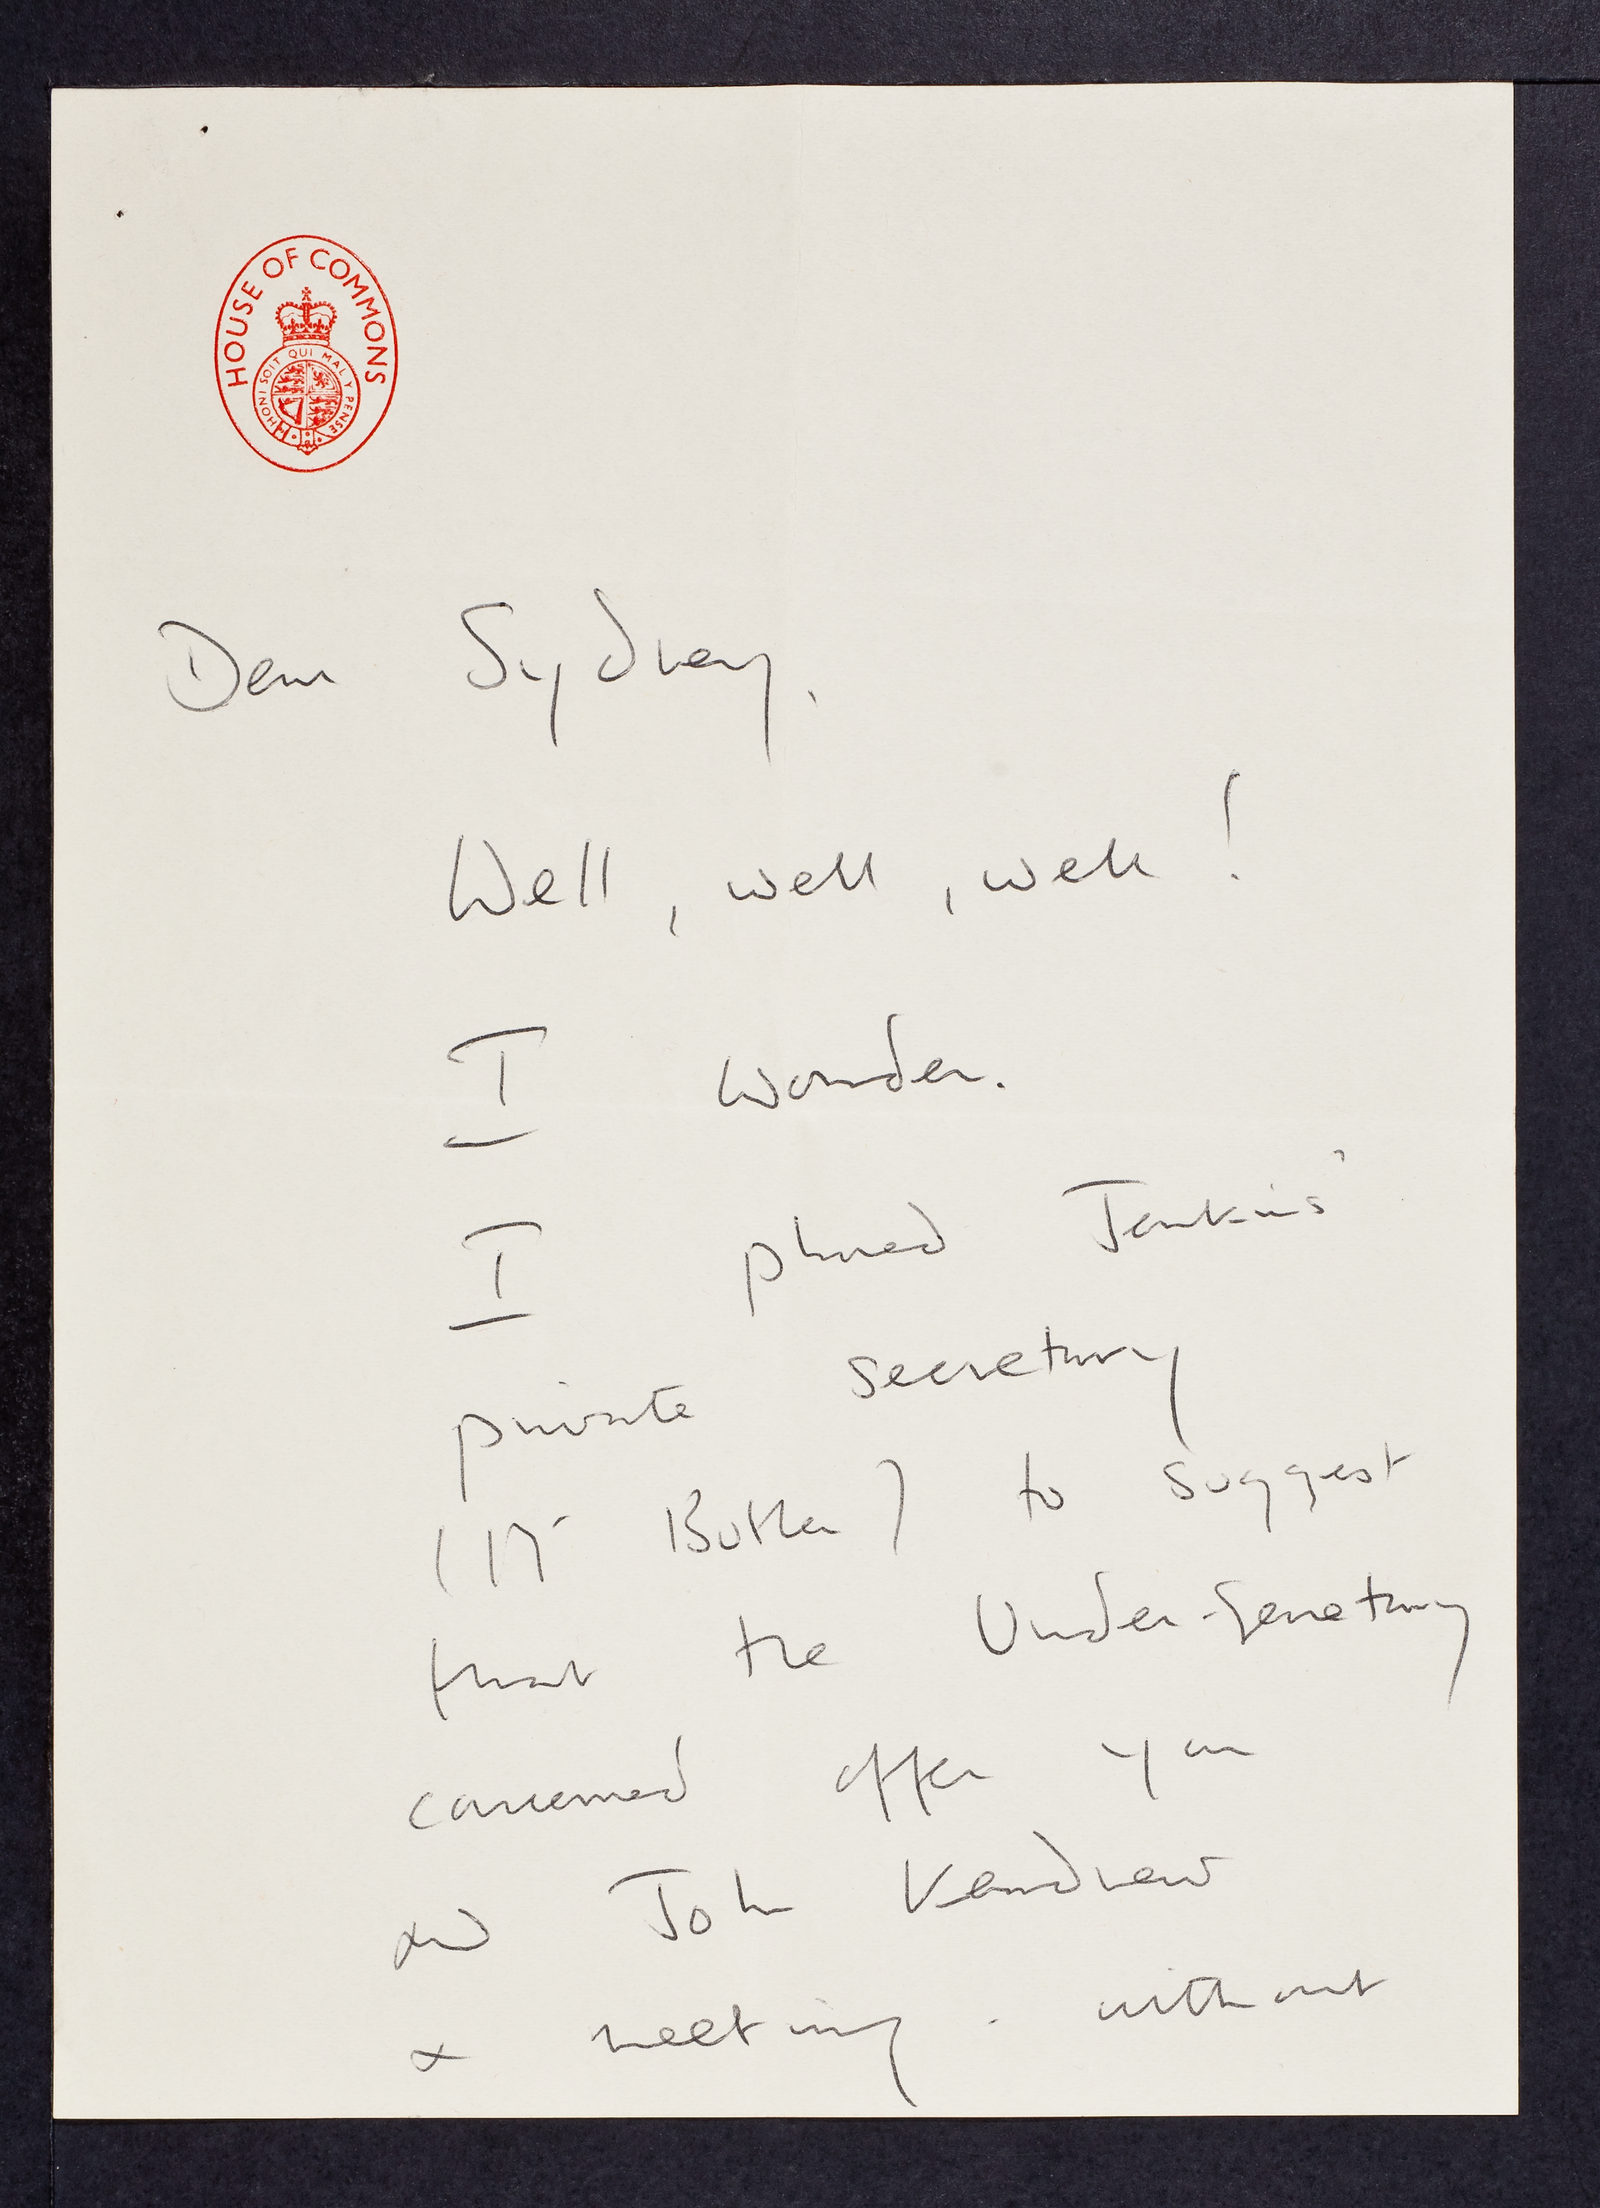 HOUSE OF COMMONS
HONI SOIT QUI MAL Y PENSE
Dear Sydney,
Well, well, well!
I wonder.
I phoned Jenkins'
private secretary
(Mr Butler) to suggest
that the Under-Secretary
concerned offer you
and John Kendrew
a meeting. without